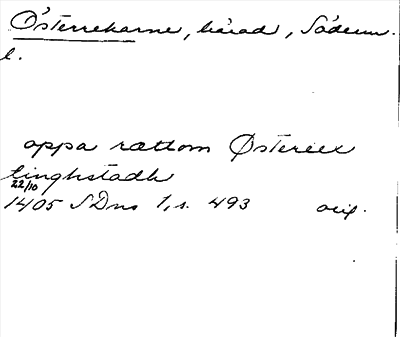 Österrekarne, härad, Söderm.
l.
oppa rættom Østerëex
tinghstadh
22/10
1405 SDns 1, s. 493 orig.